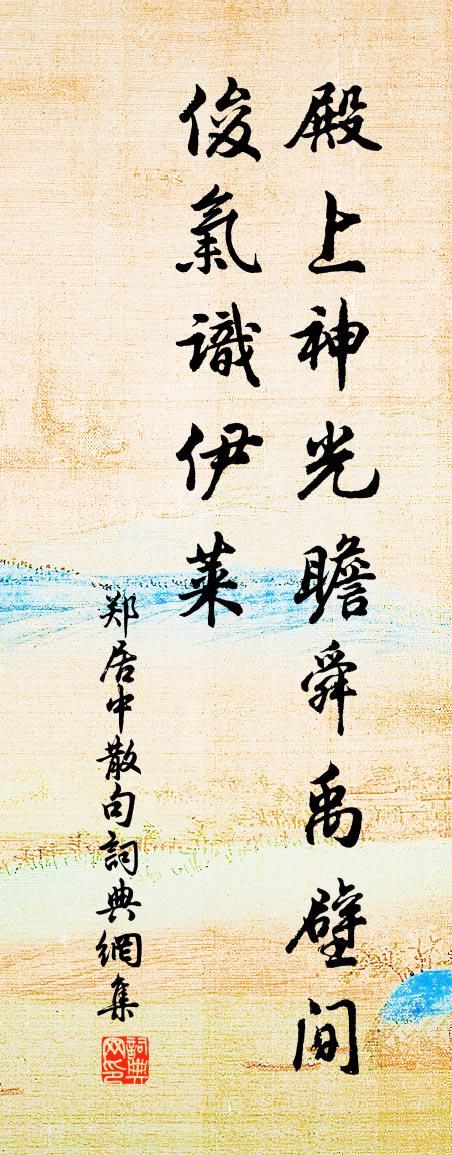 殿上神光瞻舜禹壁间
俊氣識伊莱
郑居中散句詞典網集
詞典网印